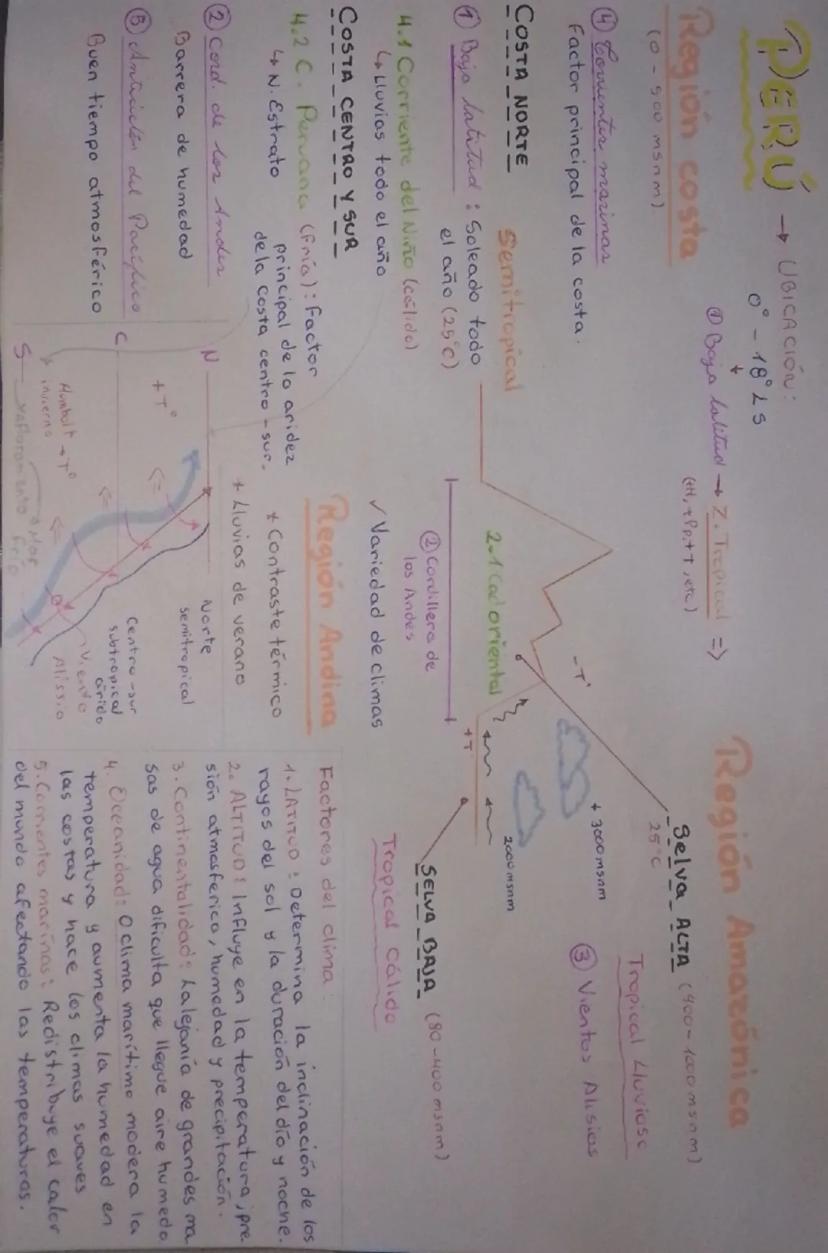 PERÚ → UBICACIÓN:
0° - 18° LS
① Baja latitud → Z. Tropical =>
(+H, +Pp, +T, etc)
Región costa
(0 - 500 msnm)
④ Corrientes marinas
Factor principal de la costa.
COSTA NORTE
Semitropical
① Baja latitud : Soleado todo
el año (25°C)
4.1 Corriente del Niño (cálida)
↳ Lluvias todo el año
COSTA CENTRO Y SUR
4.2 C. Peruana (Fría): Factor
principal de la aridez
de la costa centro-sur.
↳ N. Estrato
② Cord. de los Andes
Barrera de humedad
③ Anticiclón del Pacífico
Buen tiempo atmosférico
N
C
S
+T°
Humbolt → -T°
invierno
Afloramiento
Mar
Frío
Norte
semitropical
Centro-sur
subtropical
árido
Viento
Alissio
2.1 Cad oriental
② Cordillera de
los Andes
✓ Variedad de climas
Región Andina
+ Contraste térmico
+ Lluvias de verano
-T°
+T
+ 3000 msnm
2000 msnm
Región Amazónica
Selva ALTA (400-1000 msnm)
25°C
Tropical Lluvioso
③ Vientos Alisios
SELVA BAJA (80-400 msnm)
Tropical Cálido
Factores del clima:
1. LATITUD : Determina la inclinación de los
rayos del sol y la duración del día y noche.
2. ALTITUD: Influye en la temperatura, pre
sión atmosférica, humedad y precipitación.
3. Continentalidad: La lejanía de grandes ma
sas de agua dificulta que llegue aire humedo
4. Oceanidad: O clima marítimo modera la
temperatura y aumenta la humedad en
las costas y hace los climas suaves
5. Corrientes marinas: Redistribuye el calor
del mundo afectando las temperaturas.